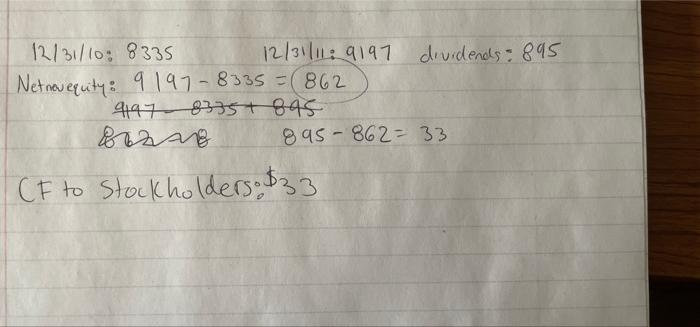 12/31/10: 8335 12/31/11: 9197 dividends: 895
Net new equity: 9197 - 8335 = 862
9197 - 8335 + 895
895 - 862 = 33
CF to Stockholders: $33